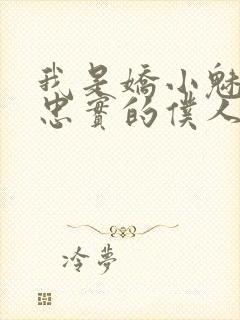 我是嬌小魅
忠實的僕人
冷夢